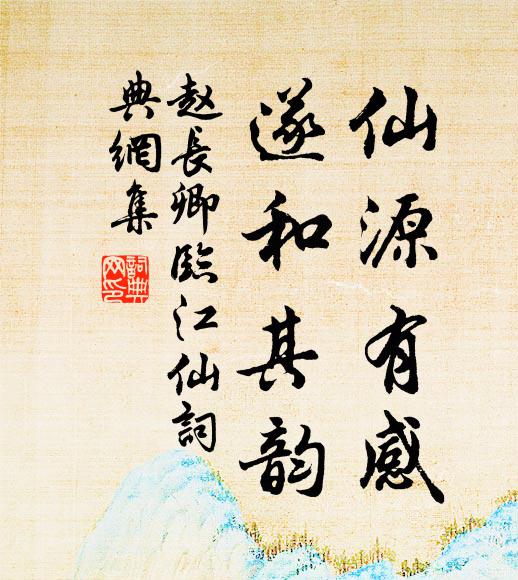 仙源有感
遂和其韵
赵長卿臨江仙詞
典網集
詞典
网印